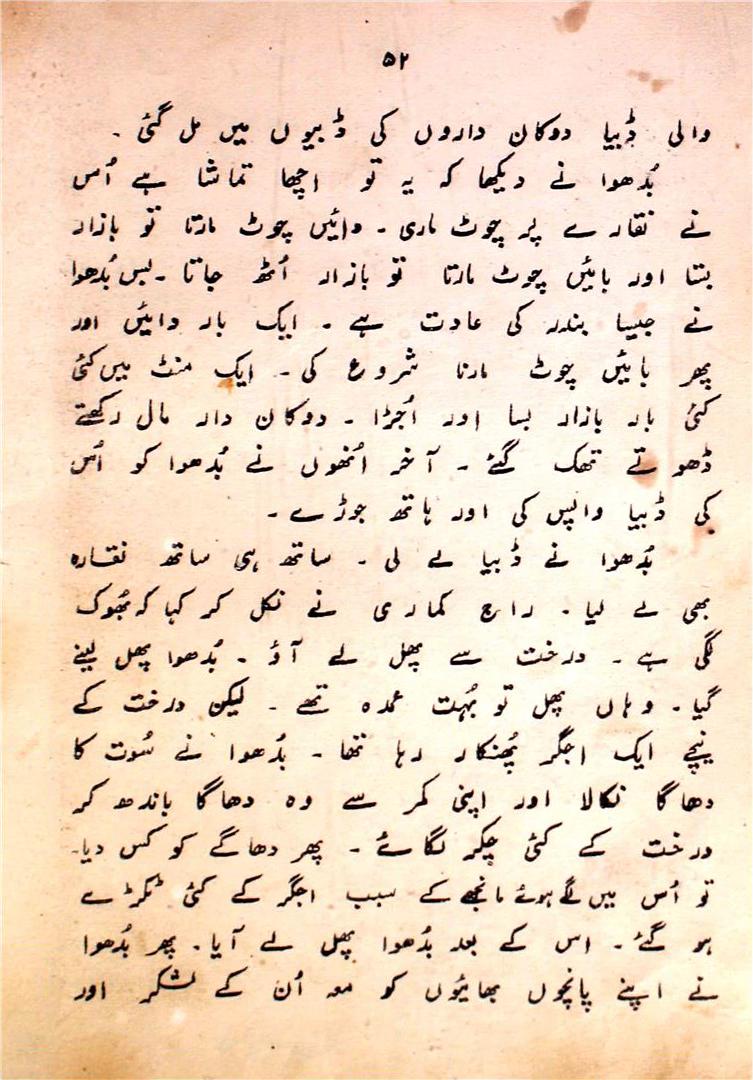 ۵۲
والی ڈبیا دوکان داروں کی ڈبیوں میں مل گئی ۔
بُدھوا نے دیکھا کہ یہ تو اچھا تماشا ہے اُس
نے نقارے پر چوٹ ماری ۔ دائیں چوٹ مارتا تو بازار
بستا اور بائیں چوٹ مارتا تو بازار اُٹھ جاتا ۔ بس بُدھوا
نے جیسا بندر کی عادت ہے ۔ ایک بار دائیں اور
پھر بائیں چوٹ مارنا شروع کی ۔ ایک منٹ میں کئی
کئی بار بازار بسا اور اُجڑا ۔ دوکان دار مال رکھتے
ڈھوتے تھک گئے ۔ آخر اُنھوں نے بُدھوا کو اُس
کی ڈبیا واپس کی اور ہاتھ جوڑے ۔
بُدھوا نے ڈبیا لے لی ۔ ساتھ ہی ساتھ نقارہ
بھی لے لیا ۔ راج کماری نے نکل کر کہا کہ بھُوک
لگی ہے ۔ درخت سے پھل لے آؤ ۔ بُدھوا پھل لینے
گیا ۔ وہاں پھل تو بُہت عمدہ تھے ۔ لیکن درخت کے
نیچے ایک اجگر پھُنکار رہا تھا ۔ بُدھوا نے سُوت کا
دھاگا نکالا اور اپنی کمر سے وہ دھاگا باندھ کر
درخت کے کئی چکر لگائے ۔ پھر دھاگے کو کس دیا ۔
تو اُس میں لگے ہوئے مانجھے کے سبب اجگر کے کئی ٹکڑے
ہو گئے ۔ اس کے بعد بُدھوا پھل لے آیا ۔ پھر بُدھوا
نے اپنے پانچوں بھائیوں کو معہ اُن کے لشکر اور